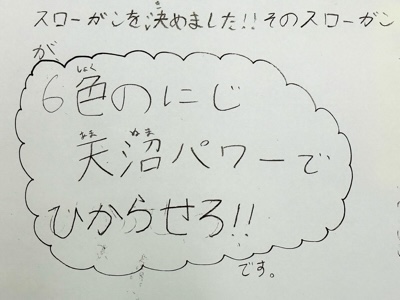 スローガンを決めました!!そのスローガン
が
6色のにじ
天沼パワーで
ひからせろ!!
です。